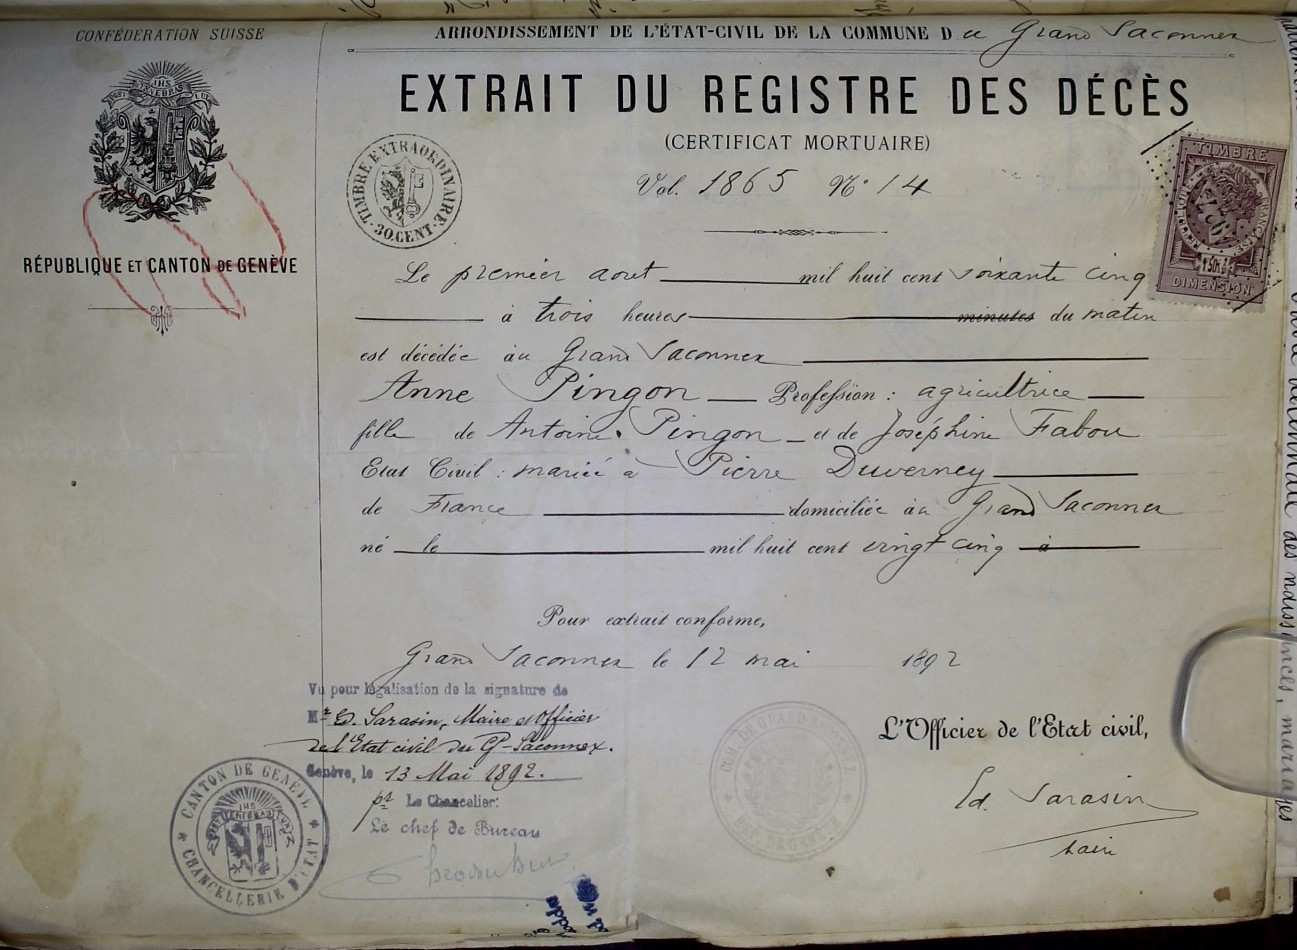 CONFÉDÉRATION SUISSE
RÉPUBLIQUE ET CANTON DE GENÈVE
ARRONDISSEMENT DE L'ÉTAT-CIVIL DE LA COMMUNE Du Grand Saconnex
EXTRAIT DU REGISTRE DES DÉCÈS
(CERTIFICAT MORTUAIRE)
TIMBRE EXTRAORDINAIRE
30 CENT.
Vol. 1865 No. 14
TIMBRE
DIMENSION
Le premier aout mil huit cent soixante cinq
à trois heures minutes du matin
est décédée au Grand Saconnex
Anne Pingon Profession : agricultrice
fille de Antoine Pingon et de Joséphine Fabou
Etat Civil : mariée à Pierre Duverney
de France domiciliée au Grand Saconnex
né le mil huit cent vingt cinq à
Pour extrait conforme,
Grand Saconnex le 12 mai 1892
Vu pour légalisation de la signature de
Mr Ed. Sarasin, Maire et Officier
de l'Etat civil du Gd-Saconnex.
Genève, le 13 Mai 1892.
pr Le Chancelier:
Le chef de Bureau
L'Officier de l'Etat civil,
Ed. Sarasin
maire
CANTON DE GENÈVE
CHANCELLERIE D'ETAT
IHS